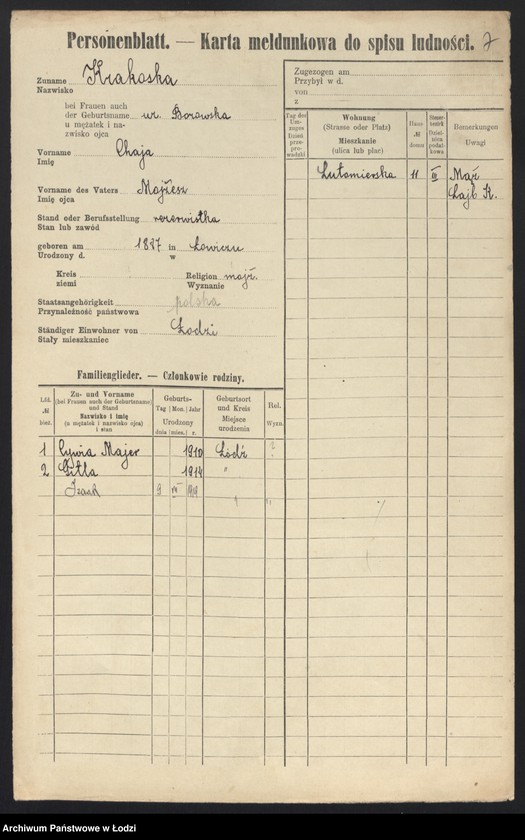 Personenblatt. — Karta meldunkowa do spisu ludności. 7
Zuname
Nazwisko Krakoska
bei Frauen auch
der Geburtsname ur. Borowska
u mężatek i na-
zwisko ojca
Vorname Chaja
Imię
Vorname des Vaters Mojżesz
Imię ojca
Stand oder Berufsstellung rezerwistka
Stan lub zawód
geboren am 1887 in Łowiczu
Urodzony d. w
Kreis Religion mojż.
ziemi Wyznanie
Staatsangehörigkeit polska
Przynależność państwowa
Ständiger Einwohner von Łodzi
Stały mieszkaniec
Zugezogen am
Przybył w d.
von
z
Tag des Umzuges Dzień przeprowadzki
Wohnung
(Strasse oder Platz)
Mieszkanie
(ulica lub plac)
Haus № domu
Steuerbezirk Dzielnica podatkowa
Bemerkungen
Uwagi
Lutomierska 11 III Mąż
Lajb K.
Familienglieder. — Członkowie rodziny.
Lfd. № bież.
Zu- und Vorname
(bei Frauen auch der Geburtsname)
und Stand
Nazwisko i imię
(u mężatek i nazwisko ojca)
i stan
Geburts-
Tag Mon. Jahr
Urodzony
dnia mies. r.
Geburtsort
und Kreis
Miejsce
urodzenia
Rel.
Wyzn.
1 Cywia Majer 1910 Łódź
2 Gitla 1914 "
Izaak 9 1919
Archiwum Państwowe w Łodzi